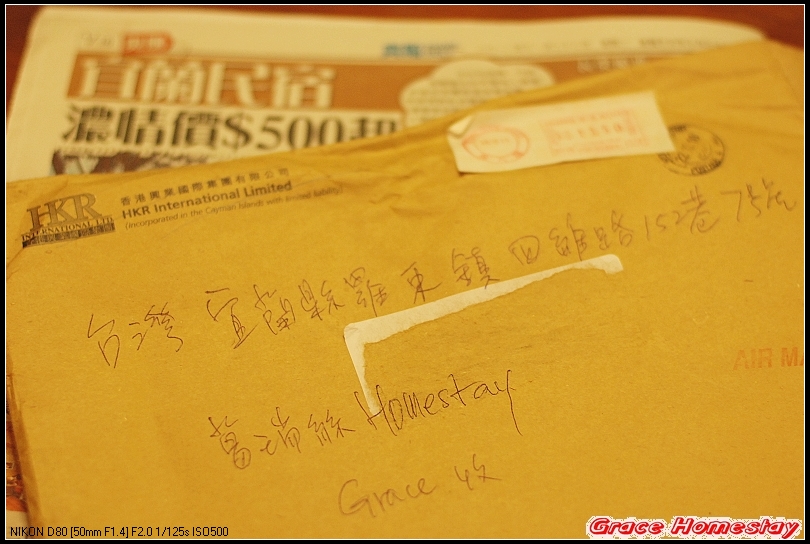 宜蘭民宿
濃情價$500起
HKR
INTERNATIONAL LTD
香港興業國際集團有限公司
HKR International Limited
(Incorporated in the Cayman Islands with limited liability)
台灣 宜蘭縣羅東鎮四維路152巷75號
葛瑞絲 Homestay
Grace 收
AIR MA
NIKON D80 [50mm F1.4] F2.0 1/125s ISO500
Grace Homestay